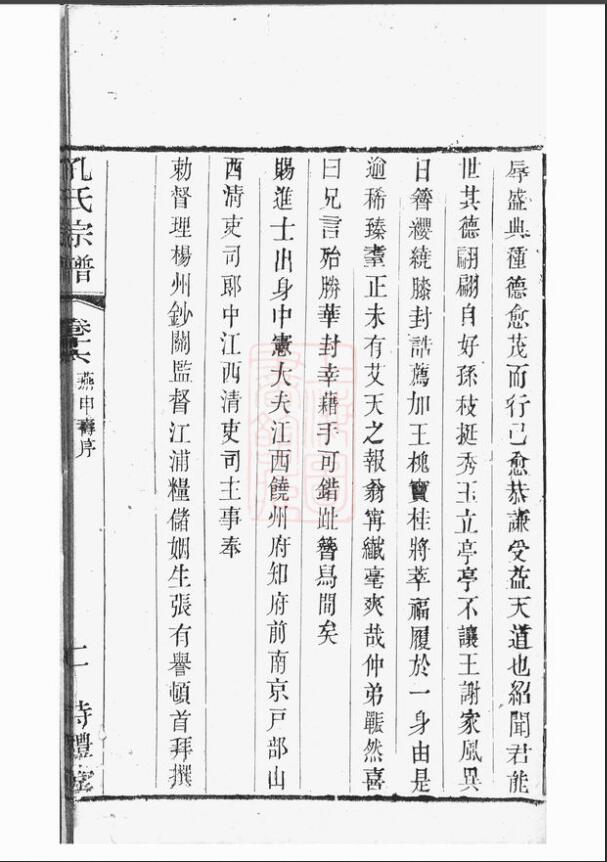 辱盛典種德愈茂而行己愈恭謙受益天道也紹聞君能
世其德翩翩自好孫枝挺秀玉立亭亭不讓王謝家風異
日簪纓繞膝封誥薦加王槐竇桂將萃福履於一身由是
逾稀臻耋正未有艾天之報翁寧纎毫爽哉仲弟囅然喜
曰兄言殆勝華封幸藉手可錯趾簪舄間矣
賜進士出身中憲大夫江西饒州府知府前南京戶部山
西清吏司郎中江西清吏司主事奉
勅督理楊州鈔關監督江浦糧儲姻生張有譽頓首拜撰
孔氏宗譜
卷十六
燕申壽序
二
詩禮堂